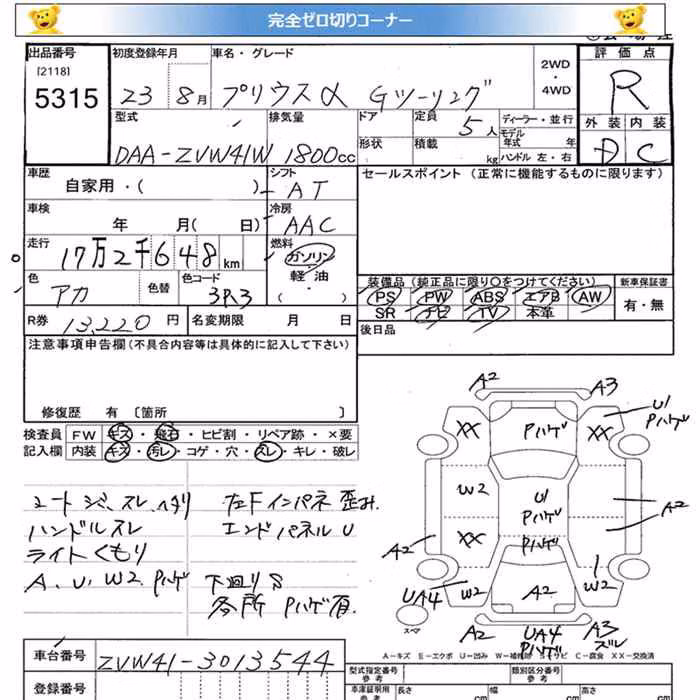 完全ゼロ切りコーナー
出品番号 初度登録年月 車名・グレード 評価点
[2118]
5315
23 8月 プリウスα Gツーリング
2WD
・
4WD
R
型式 排気量 ドア 定員 ディーラー・並行 外装 内装
DAA-ZVW41W 1800cc 5人
形状 積載 kg モデル年式 年
ハンドル 左・右
D C
車歴 シフト セールスポイント(正常に機能するものに限ります)
自家用・( ) AT
車検 冷房
年 月( 日) AAC
走行 燃料
17万2千648km ガソリン
軽・油
・( )
色 色替 色コード
アカ 3R3
装備品(純正品に限り○をつけてください) 新車保証書
PS PW ABS エアB AW 有・無
SR ナビ TV 本革
R券 13,220円 名変期限 月 日 後日品
注意事項申告欄(不具合内容等は具体的に記入して下さい)
修復歴 有〔箇所 〕
検査員 FW キズ・飛石・ヒビ割・リペア跡・×要
記入欄 内装 キズ・汚レ・コゲ・穴・スレ・キレ・破レ
スレ、ヘタリ 左Fインパネ歪み
ハンドルスレ エンドパネルU
ライトくもり
A、U、W2、Pハゲ 下廻りS
各所Pハゲ有
A2 A3
U1
Pハゲ
XX Pハゲ XX
W2 U1
Pハゲ A2
XX Pハゲ
A2
UA4 W2 A2 W2
スペア
A2 UA4
Pハゲ A3
ズレ
A=キズ E=エクボ U=凹み W=補修跡 S=サビ C=腐食 XX=交換済
車台番号 ZVW41-3013544
型式指定番号
参考 類別区分番号
参考
登録番号
車庫証明用
参考 長さ cm 幅 cm 高さ cm